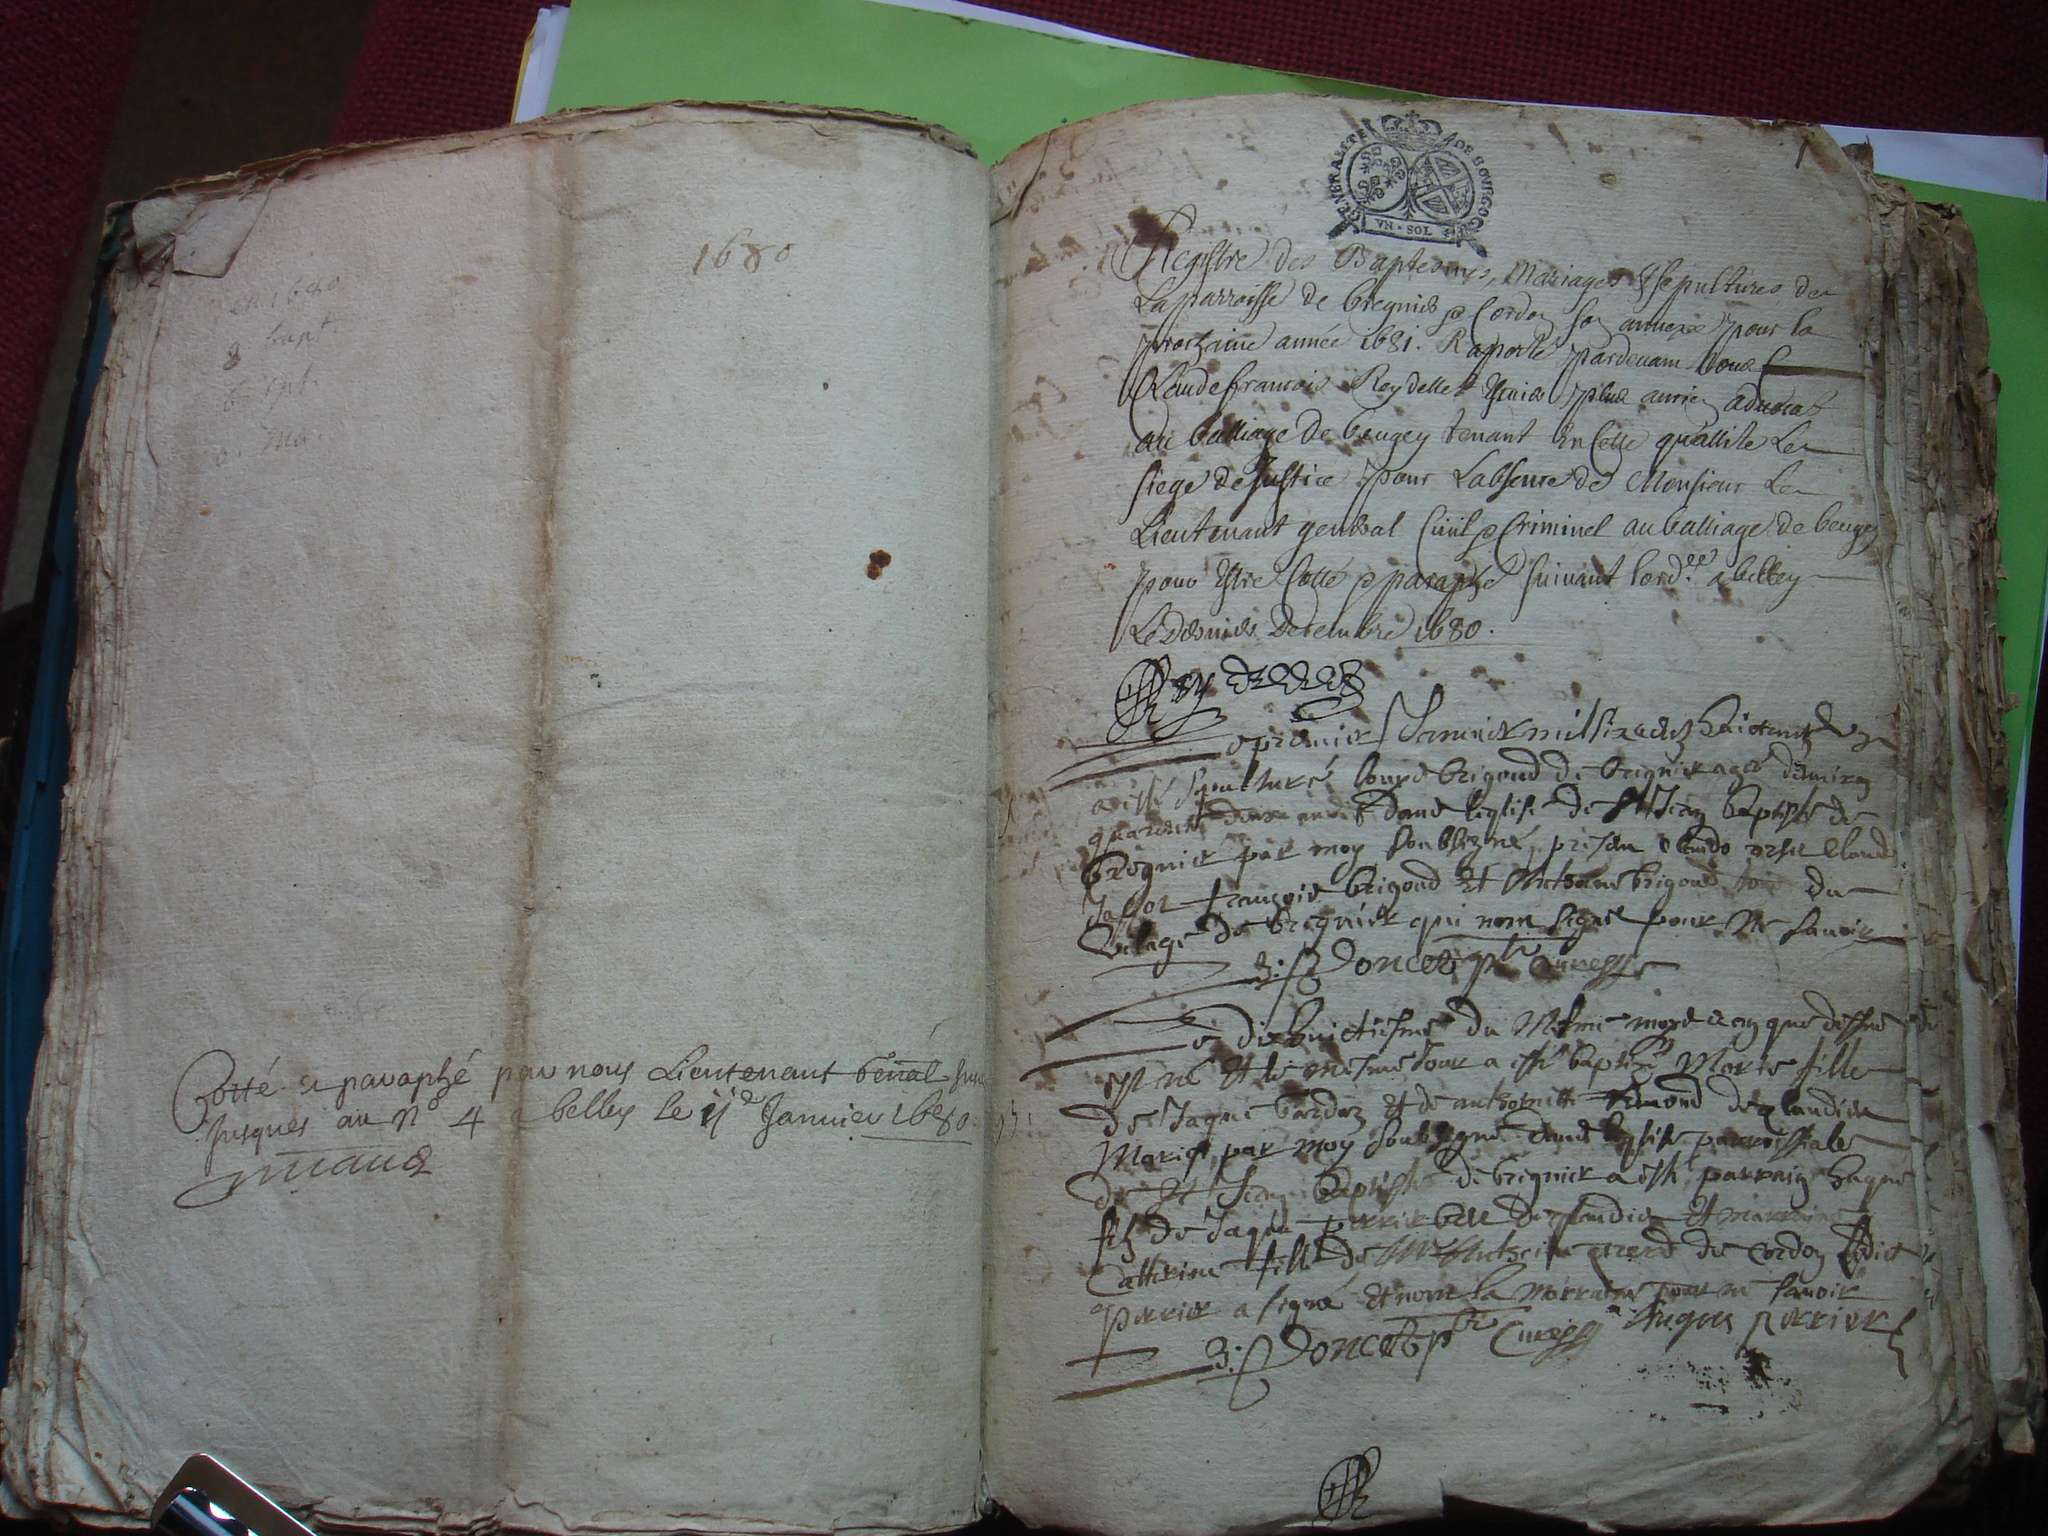 1680
en 1680
8 bapt.
Cotté et paraphé par nous Lieutenant genal
Jusques au N° 4 a belley le Janvier 1680.
GENERALITE DE BOURGOG
VN · SOL
Registre des Baptesmes, Mariages & sepultures de
La parroisse de bregnier & Cordon son annexe pour la
prochaine année 1681. Raporté pardevant Nous
Claude francois Reydellet plus ancien advocat
au balliage de beugey tenant En Cette quallite Le
siege de Justice pour Labsence de Monsieur Le
Lieutenant general Civil & Criminel au balliage de beugey
pour Estre Cotté & paraphé suivant lord.ce a belley
Le dernier Decembre 1680.
Reydellet
e premier Janvier mil six cents huictante
a esté sepulturé brigoud de bregnier agé denviron
quarante dans leglise de St Jean baptiste de
bregnier par moy soubsigné, presen Claude
francois brigoud Et Anthoine brigoud du
village de bregnier qui nont signé pour ne savoir
Doncet ptre Curé
e dixhuictiesme du Mesme mois que dessus
est né Et le mesme Jour a esté baptizé Marie fille
de Jaque Et de anthoinette de glandieu
Mariés, par moy soubsigné dans leglise parroissiale
de St Jean baptiste de bregnier a esté parrain hugue
filz de Jaque perrier de glandieu Et marraine
Catherine fille de Anthoine de Cordon Ledict
perrier a signé Et non la Marraine pour ne savoir
Doncet ptre Curé hugues perrier